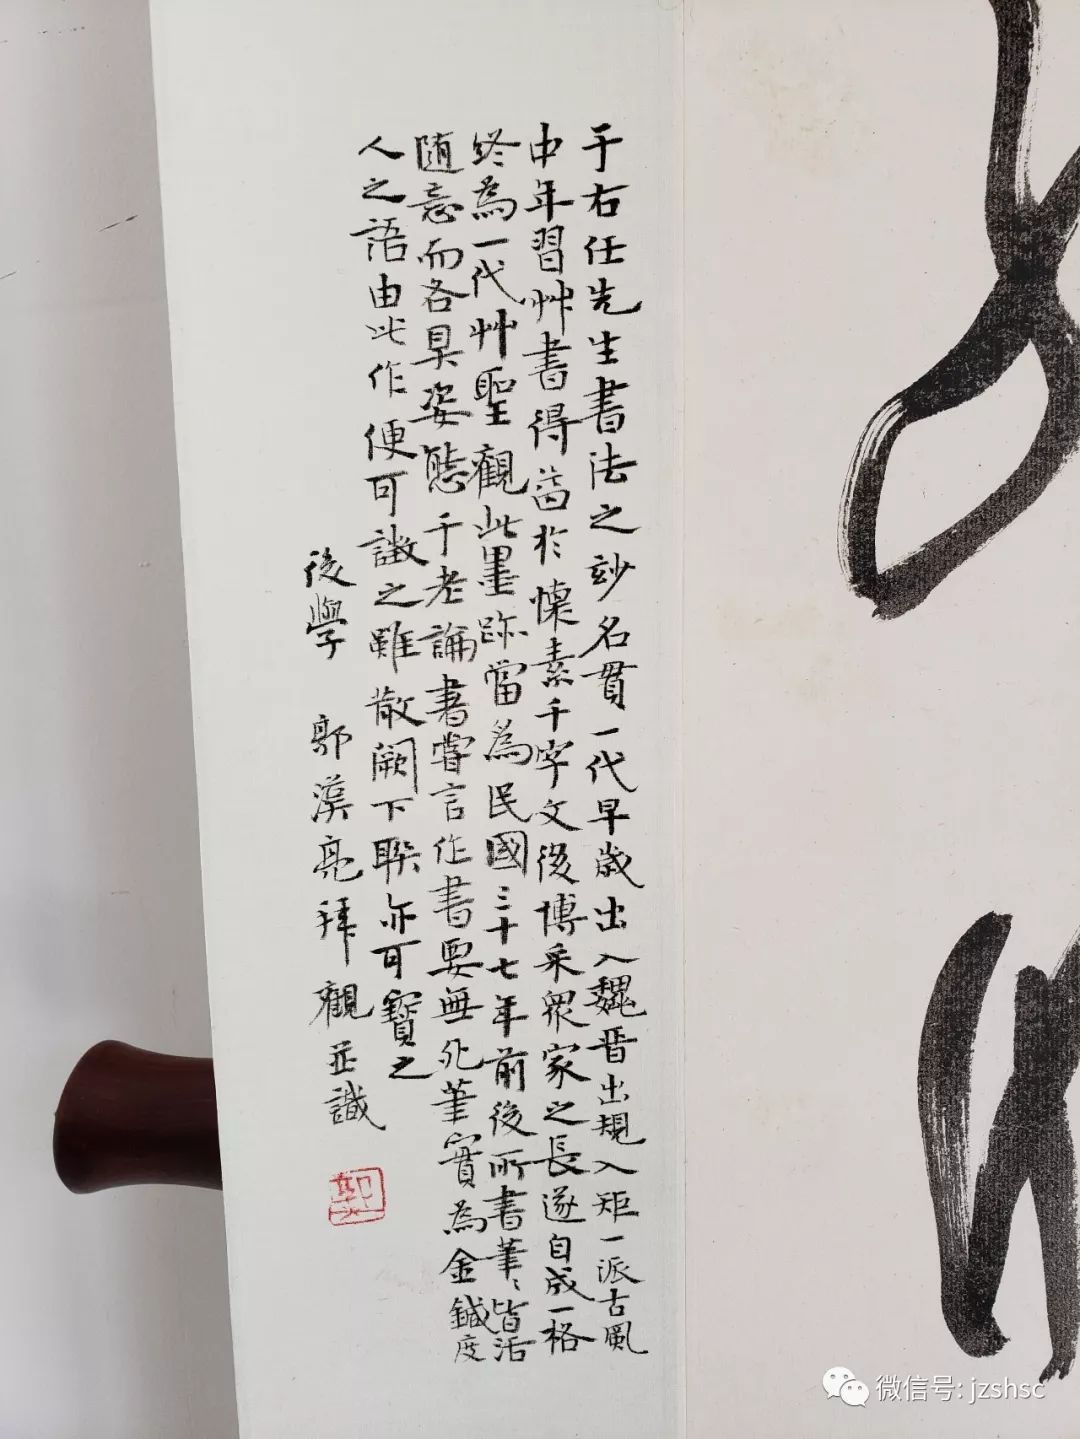 于右任先生書法之妙名貫一代早歲出入魏晋出規入矩一派古風
中年習艸書得益於懷素千字文後博采衆家之長遂自成一格
終為一代艸聖觀此墨跡當為民國三十七年前後所書筆〻皆活
隨意而各具姿態于老論書嘗言作書要無死筆實為金鍼度
人之語由此作便可證之雖散闕下聯亦可寶之
後學 郭漢亮拜觀並識
微信号: jzshsc